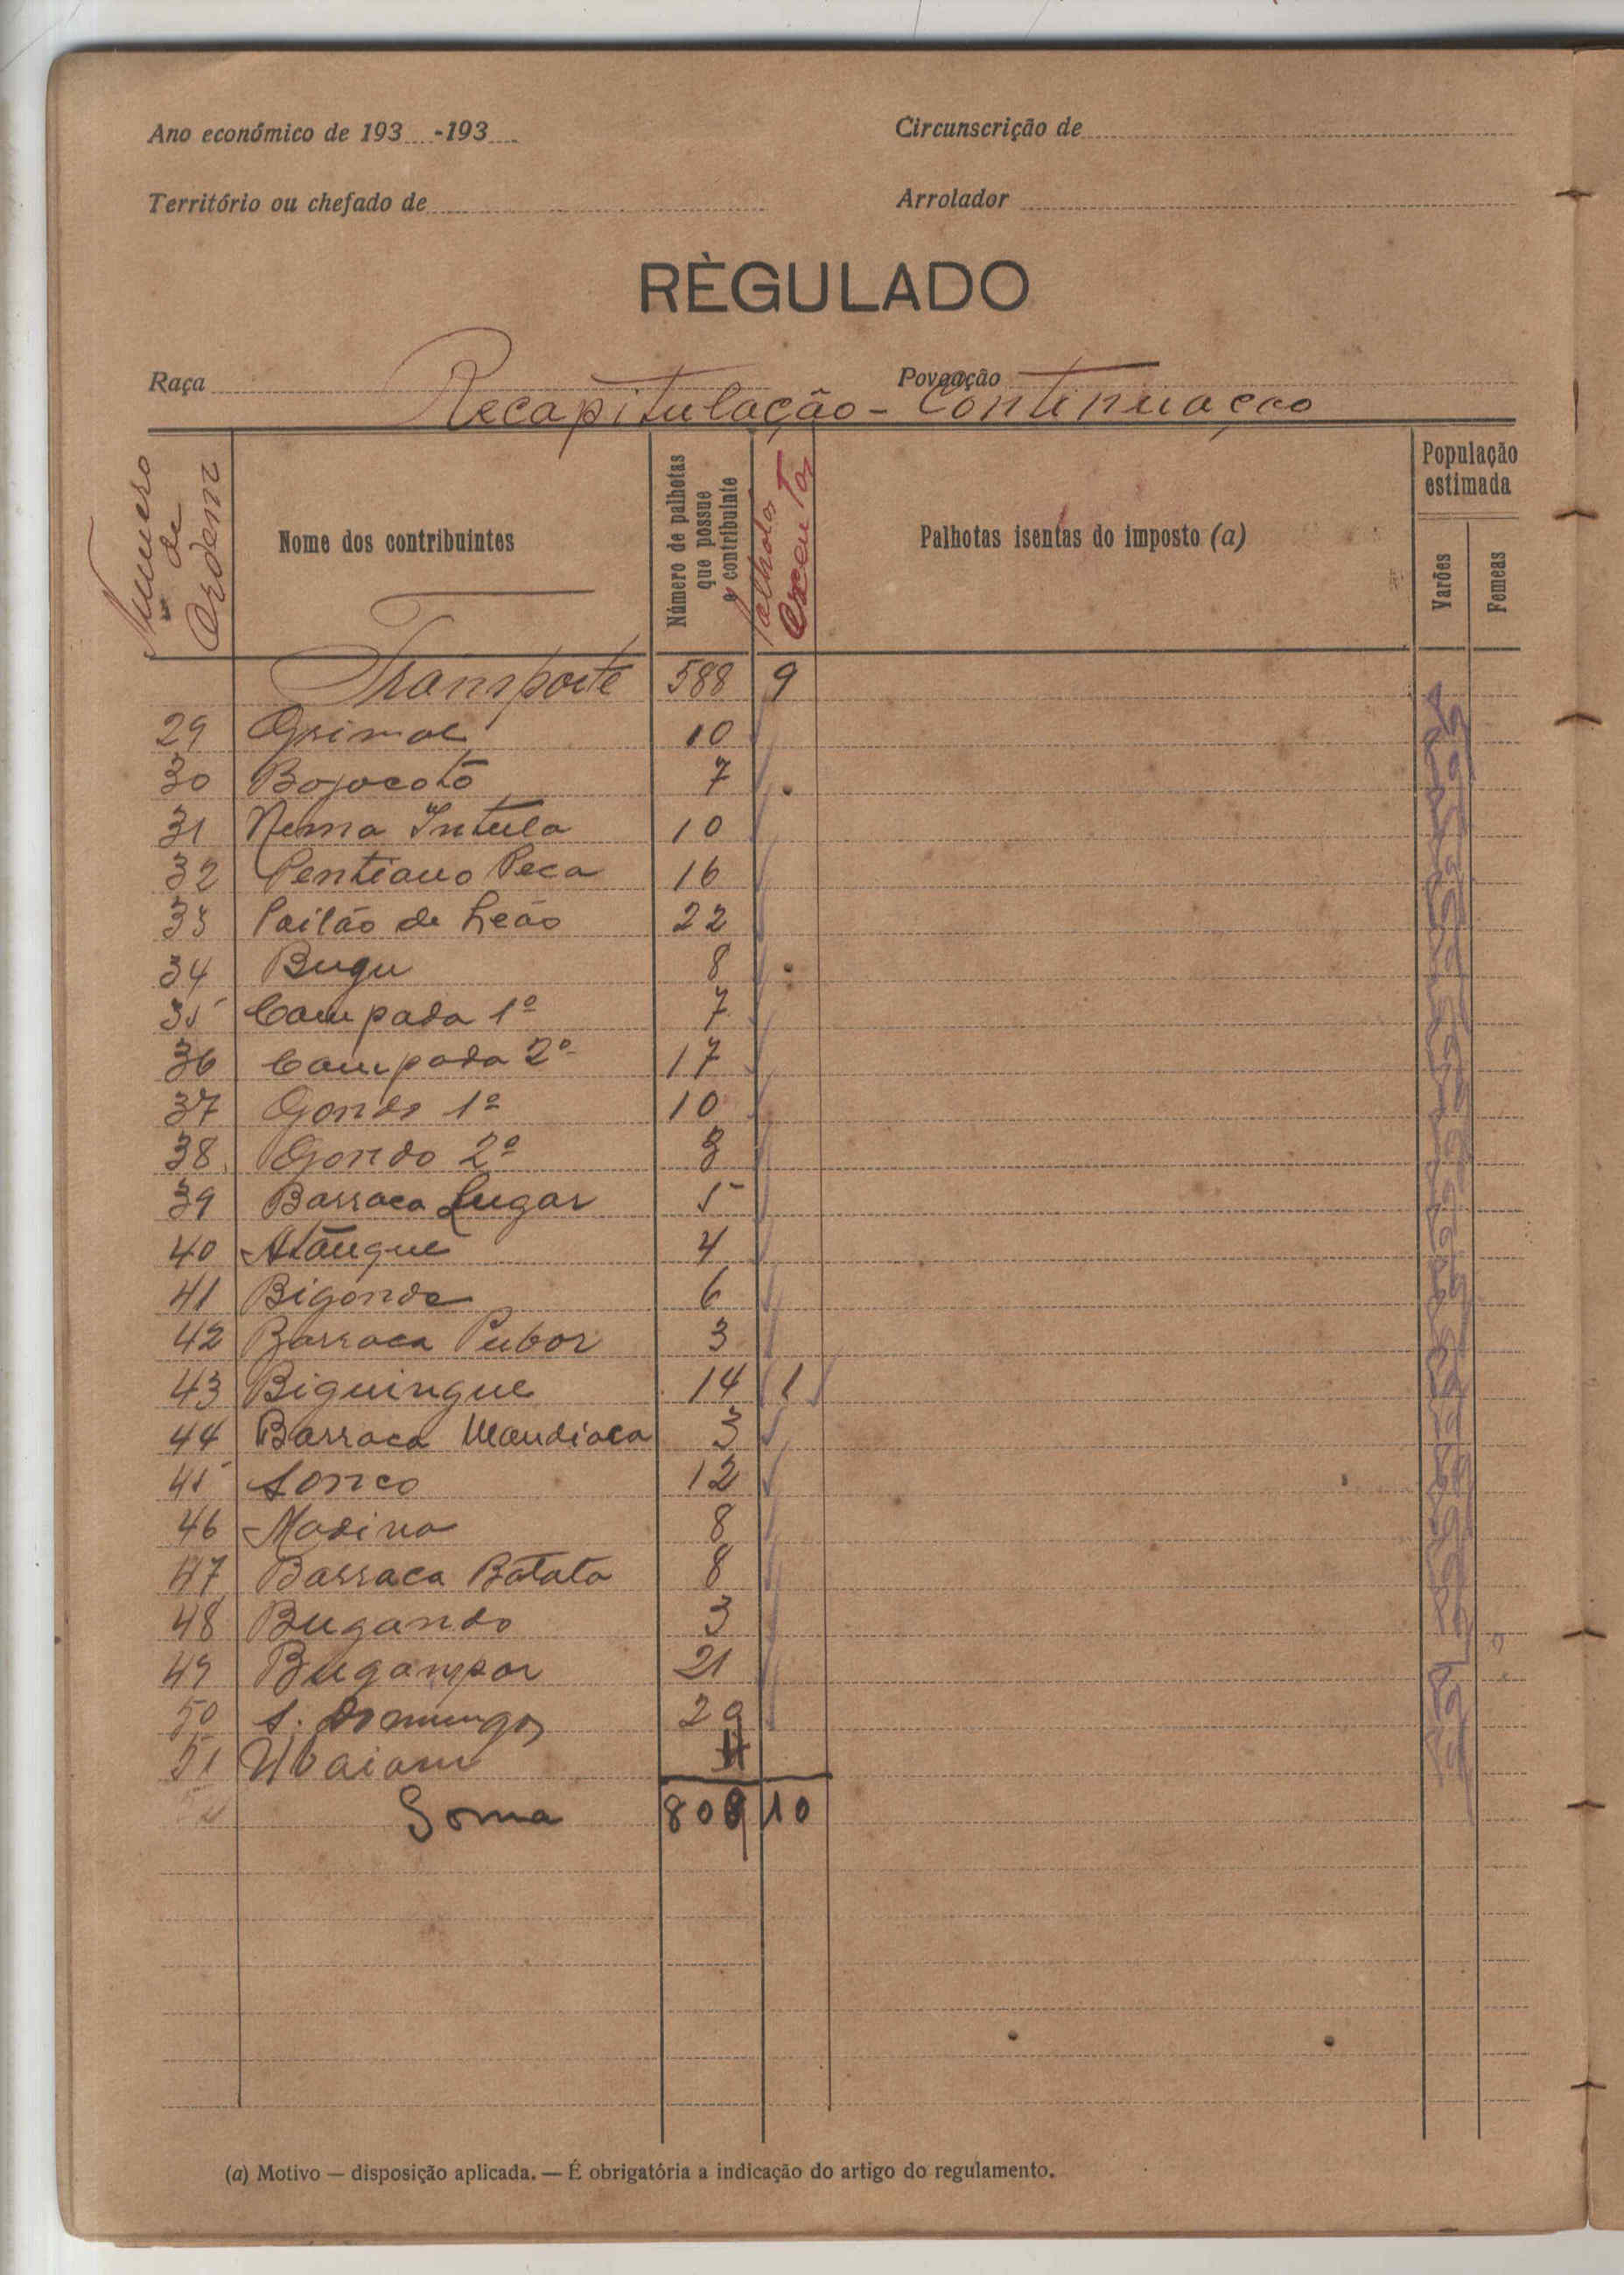 Ano económico de 193 -193
Circunscrição de
Território ou chefado de
Arrolador
RÈGULADO
Raça
Povoação
Recapitulação - Continuação
Numero de Ordem
Nome dos contribuintes
Número de palhotas que possue o contribuinte
Palhotas
Palhotas isentas do imposto (a)
População estimada
Varões
Femeas
Transporte 588 9
29 10
30 Bojocotó 7
31 Nema Intula 10
32 Pentiano Peca 16
33 Pailão de Leão 22
34 Bugu 8
35 Campada 1º 7
36 Campada 2º 17
37 Gondo 1º 10
38 Gondo 2º
39 Barraca Lugar 5
40 Atángue 4
41 Bigonde 6
42 Barraca Pubor 3
43 Biguingue 14 1
44 Barraca Mandioca 3
45 Sonco 12
46 Madina 8
47 Barraca Batata 8
48 Bugando 3
49 Bugampor 21
50 S. Domingos
51
Soma 809 10
(a) Motivo — disposição aplicada. — É obrigatória a indicação do artigo do regulamento.